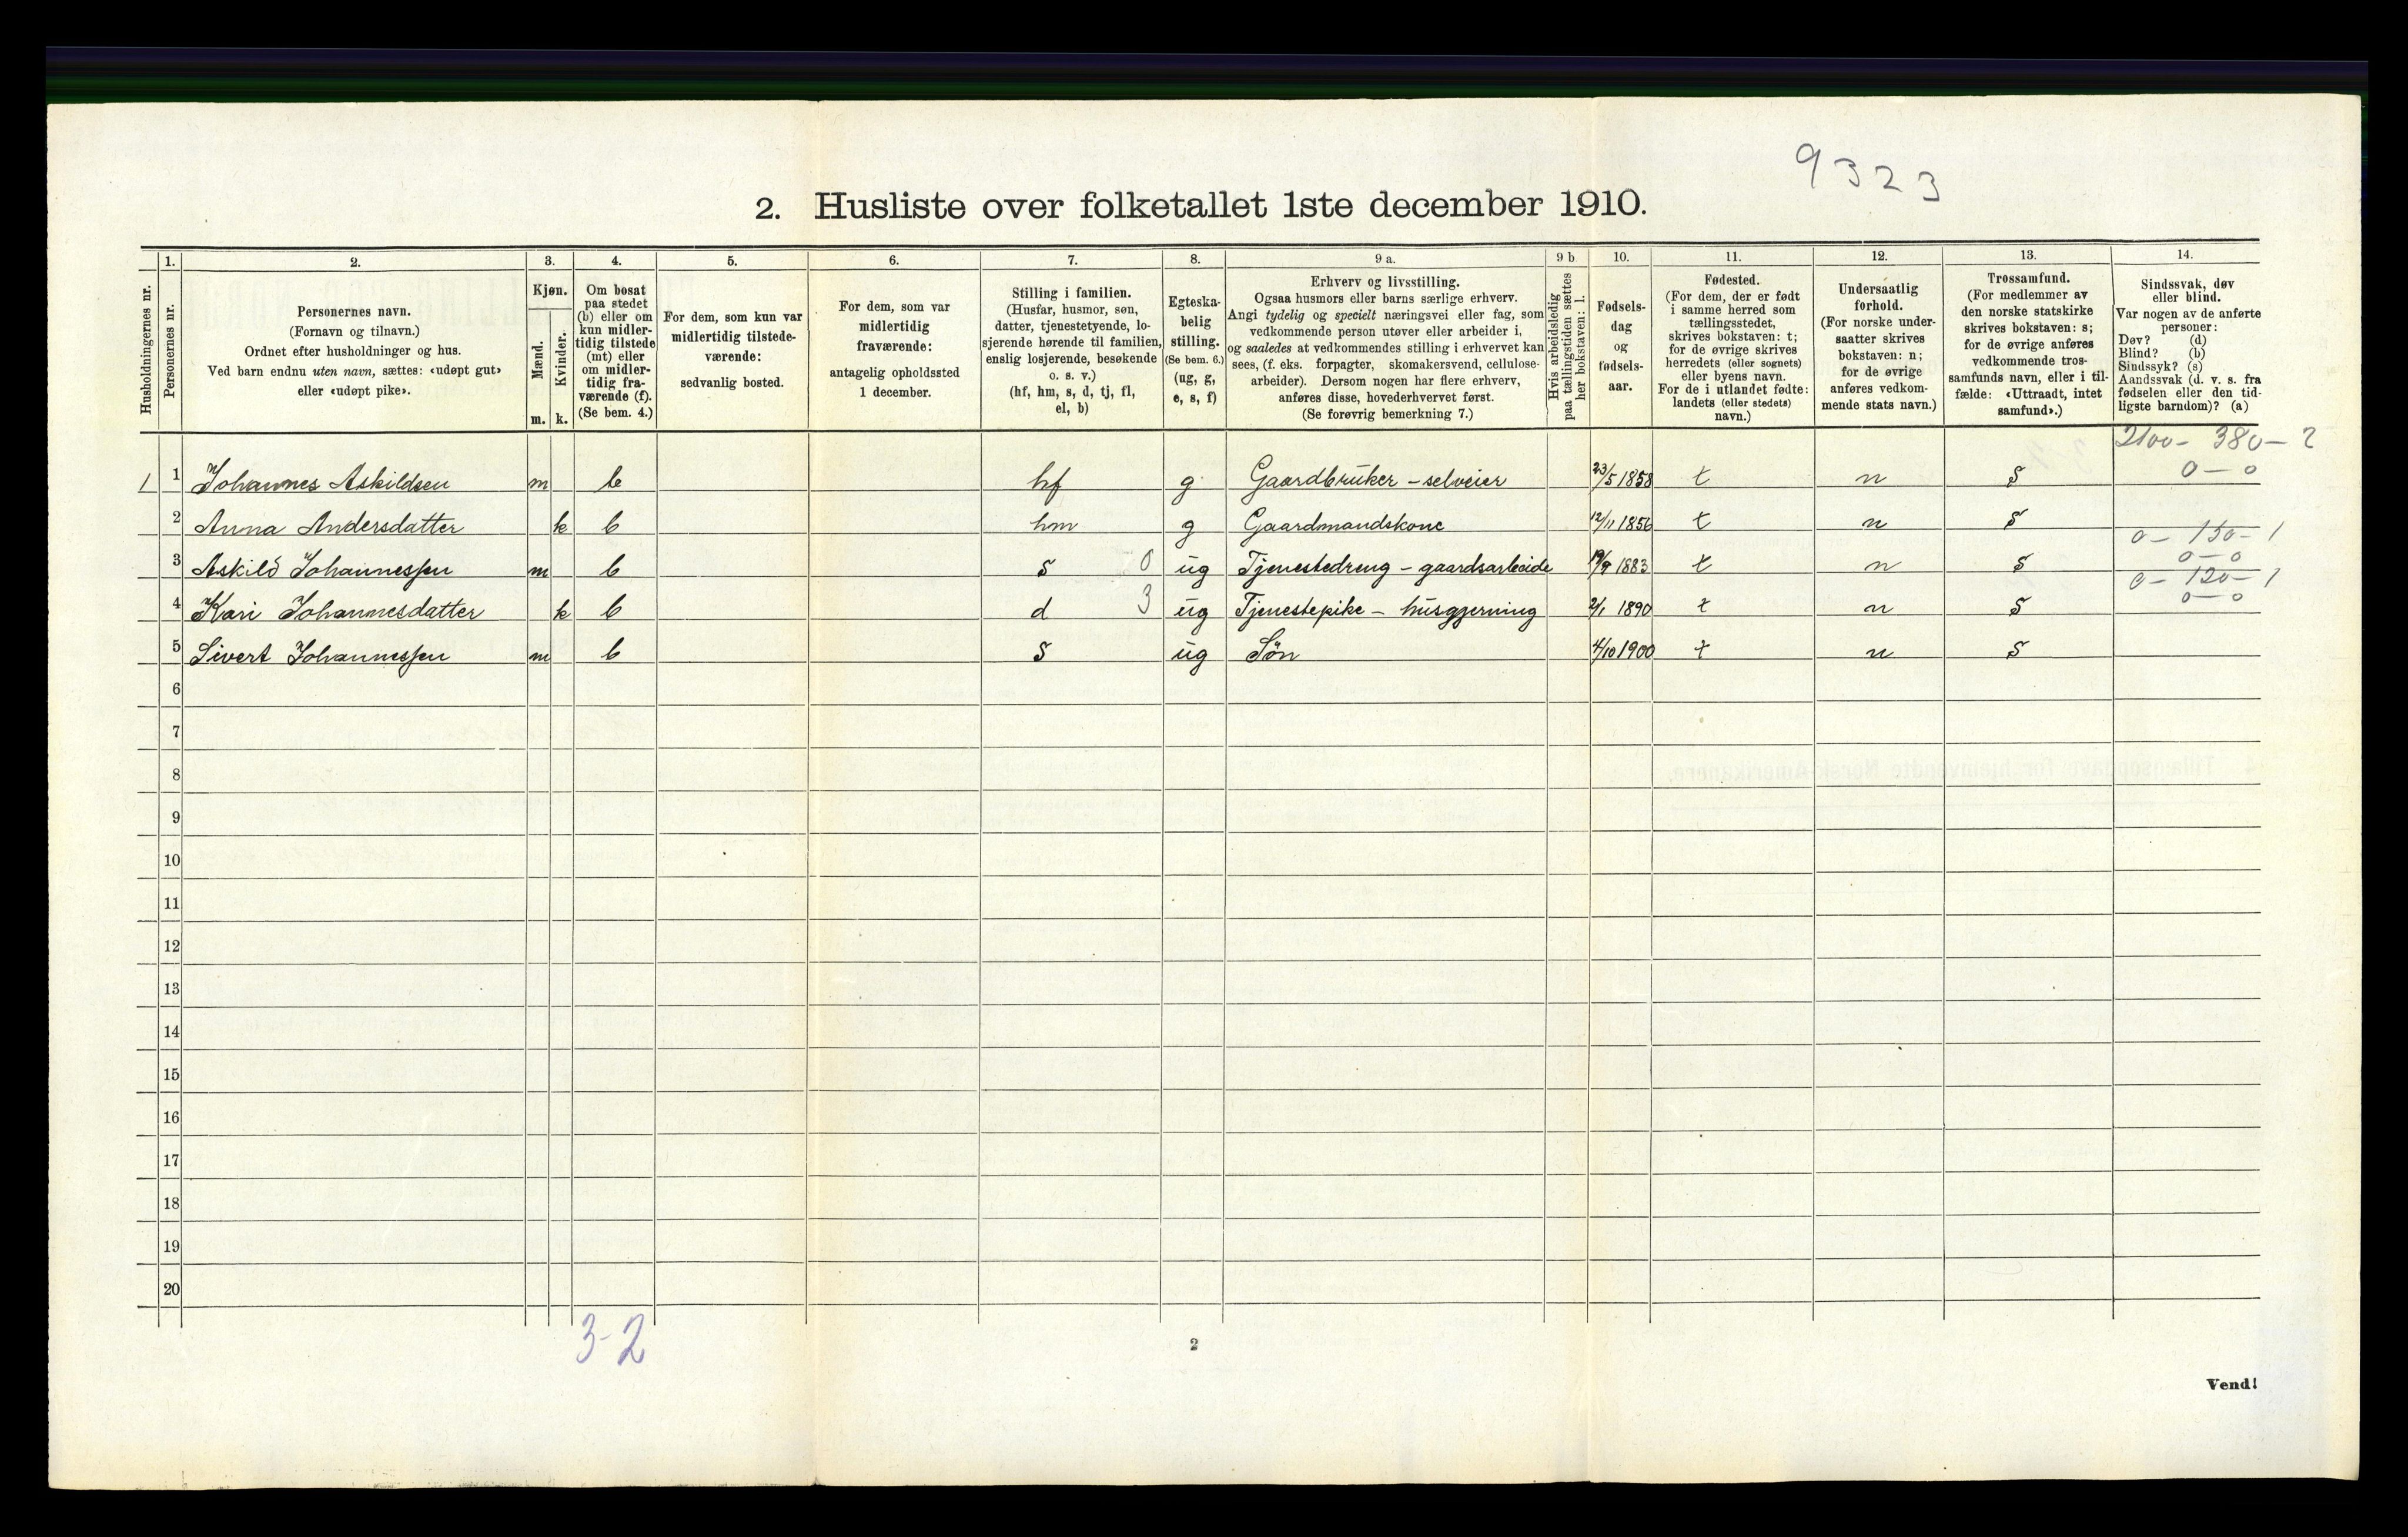 9323
2. Husliste over folketallet 1ste december 1910.
Husholdningernes nr.
1. Personernes nr.
2. Personernes navn.
(Fornavn og tilnavn.)
Ordnet efter husholdninger og hus.
Ved barn endnu uten navn, sættes: «udøpt gut»
eller «udøpt pike».
3. Kjøn.
Mænd. m.
Kvinder. k.
4. Om bosat
paa stedet
(b) eller om
kun midler-
tidig tilstede
(mt) eller
om midler-
tidig fra-
værende (f).
(Se bem. 4.)
5. For dem, som kun var
midlertidig tilstede-
værende:
sedvanlig bosted.
6. For dem, som var
midlertidig
fraværende:
antagelig opholdssted
1 december.
7. Stilling i familien.
(Husfar, husmor, søn,
datter, tjenestetyende, lo-
sjerende hørende til familien,
enslig losjerende, besøkende
o. s. v.)
(hf, hm, s, d, tj, fl,
el, b)
8. Egteska-
belig
stilling.
(Se bem. 6.)
(ug, g,
e, s, f)
9 a. Erhverv og livsstilling.
Ogsaa husmors eller barns særlige erhverv.
Angi tydelig og specielt næringsvei eller fag, som
vedkommende person utøver eller arbeider i,
og saaledes at vedkommendes stilling i erhvervet kan
sees, (f. eks. forpagter, skomakersvend, cellulose-
arbeider). Dersom nogen har flere erhverv,
anføres disse, hovederhvervet først.
(Se forøvrig bemerkning 7.)
9 b Hvis arbeidsledig
paa tællingstiden sættes
her bokstaven: l.
10. Fødsels-
dag
og
fødsels-
aar.
11. Fødested.
(For dem, der er født
i samme herred som
tællingsstedet,
skrives bokstaven: t;
for de øvrige skrives
herredets (eller sognets)
eller byens navn.
For de i utlandet fødte:
landets (eller stedets)
navn.)
12. Undersaatlig
forhold.
(For norske under-
saatter skrives
bokstaven: n;
for de øvrige
anføres vedkom-
mende stats navn.)
13. Trossamfund.
(For medlemmer av
den norske statskirke
skrives bokstaven: s;
for de øvrige anføres
vedkommende tros-
samfunds navn, eller i til-
fælde: «Uttraadt, intet
samfund».)
14. Sindssvak, døv
eller blind.
Var nogen av de anførte
personer:
Døv? (d)
Blind? (b)
Sindssyk? (s)
Aandssvak (d. v. s. fra
fødselen eller den tid-
ligste barndom)? (a)
2100 - 380 - 2
1 1 Johannes Askildsen m b hf g Gaardbruker - selveier 23/5 1858 t n S 0 - 0
2 Anna Andersdatter k b hm g Gaardmandskone 12/11 1856 t n S
0 - 150 - 1
3 Askild Johannessen m b s 0 ug Tjenestedreng - gaardsarbeide 19/9 1883 t n S 0 - 0
0 - 120 - 1
4 Kari Johannesdatter k b d 3 ug Tjenestepike - husgjerning 2/1 1890 t n S 0 - 0
5 Sivert Johannessen m b s ug Søn 4/10 1900 t n S
6
7
8
9
10
11
12
13
14
15
16
17
18
19
20
3-2
2
Vend!